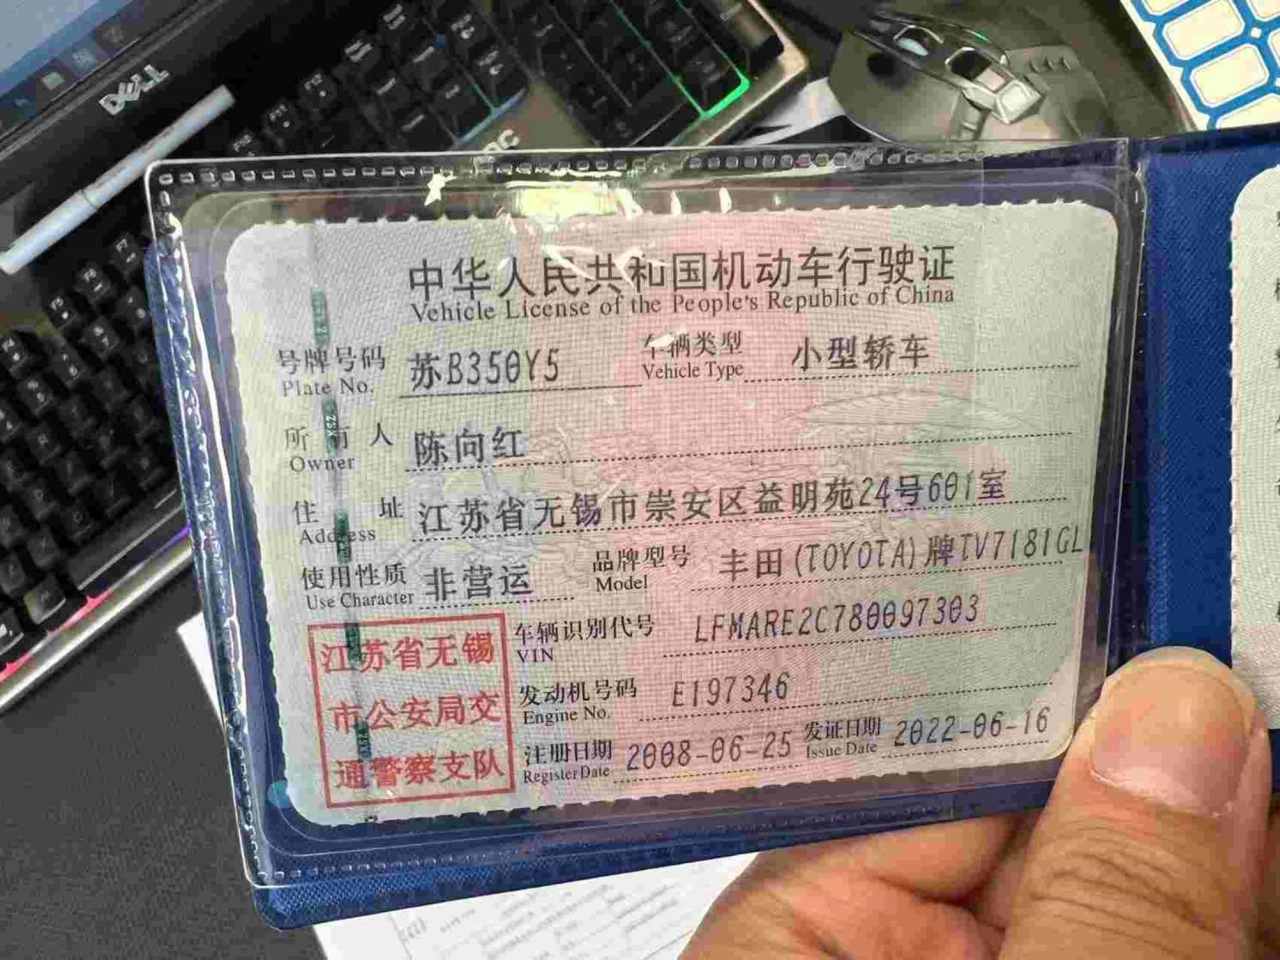 DELL
中华人民共和国机动车行驶证
Vehicle License of the People's Republic of China
号牌号码 苏B350Y5 车辆类型 小型轿车
Plate No. Vehicle Type
所有人 陈向红
Owner
住址 江苏省无锡市崇安区益明苑24号601室
Address
使用性质 非营运 品牌型号 丰田(TOYOTA)牌TV7181GL
Use Character Model
江苏省无锡
市公安局交
通警察支队
车辆识别代号 LFMARE2C780097303
VIN
发动机号码 E197346
Engine No.
注册日期 2008-06-25 发证日期 2022-06-16
Register Date Issue Date